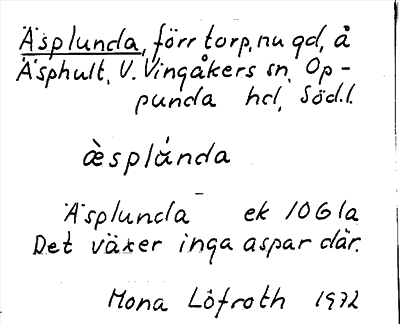 Äsplunda, förr torp, nu gd, å
Äsphult, V. Vingåkers sn, Op-
punda hd, Södl.
Äsplunda ek 10G1a
Det växer inga aspar där.
Mona Löfroth 1972